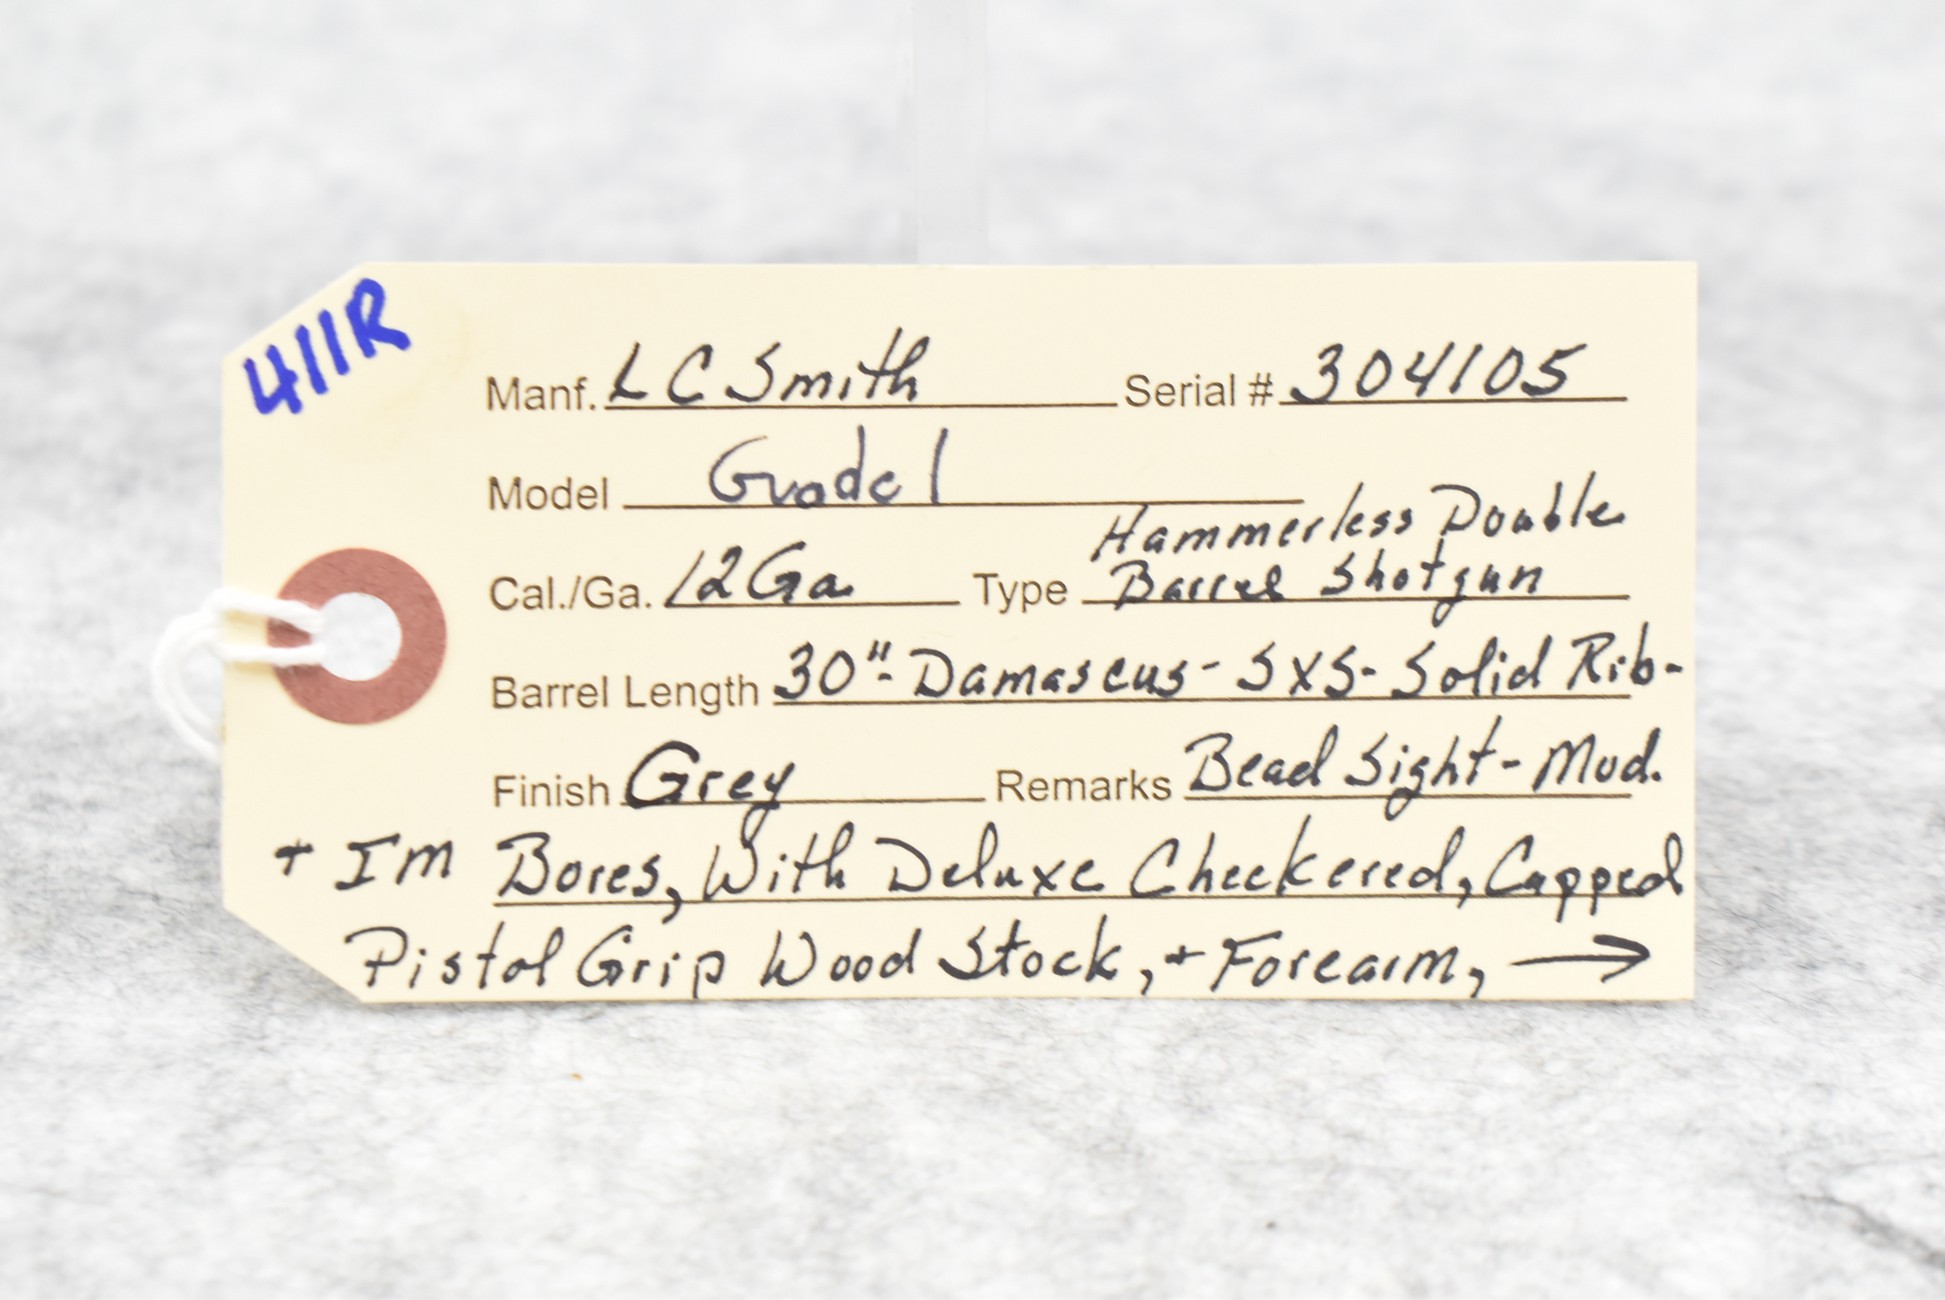 411R
Manf. L C Smith Serial # 304105
Model Grade 1
Hammerless Double
Cal./Ga. 12 Ga. Type Barrel Shotgun
Barrel Length 30"- Damascus - SXS - Solid Rib -
Finish Grey Remarks Bead Sight - Mod.
+ Im Bores, With Deluxe Checkered, Capped
Pistol Grip Wood Stock, + Forearm, →